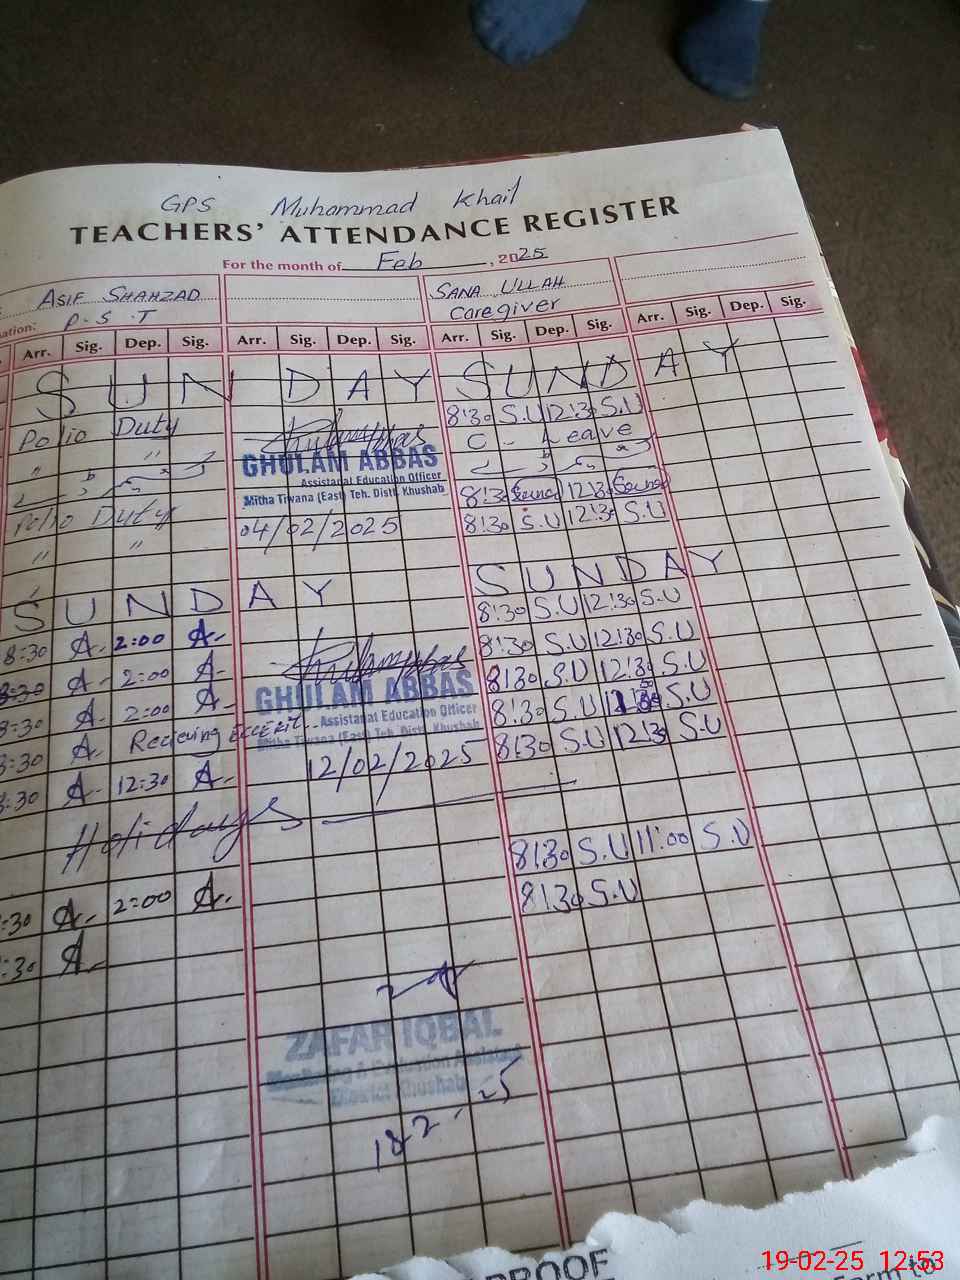 GPS Muhammad Khail
TEACHERS' ATTENDANCE REGISTER
For the month of Feb, 2025
ASIF SHAHZAD
SANA ULLAH
P.S.T
Caregiver
Arr. Sig. Dep. Sig. Arr. Sig. Dep. Sig. Arr. Sig. Dep. Sig. Arr. Sig. Dep. Sig.
SUNDAY SUNDAY
8:30 S.U 12:30 S.U
Polio Duty
C - Leave
" "
GHULAM ABBAS
Assistanat Education Officer
Mitha Tiwana (East) Teh. Distt. Khushab
8:30 12:30
Polio Duty 04/02/2025 8:30 S.U 12:30 S.U
" "
SUNDAY SUNDAY
8:30 S.U 12:30 S.U
8:30 A. 2:00 A. 8:30 S.U 12:30 S.U
8:30 A. 2:00 A. 8:30 S.U 12:30 S.U
8:30 A. 2:00 A. 8:30 S.U S.U
GHULAM ABBAS
Assistanat Education Officer
Mitha Tiwana (East) Teh. Distt. Khushab
8:30 A. Recieving 8:30 S.U 12:30 S.U
8:30 A. 12:30 A. 12/02/2025
Holidays
8:30 S.U 11:00 S.U
:30 A. 2:00 A. 8:30 S.U
:30 A.
ZAFAR IQBAL
Monitoring & Evaluation Assistant
District Khushab
18-2-25
PROOF
Form to
19-02-25 12:53